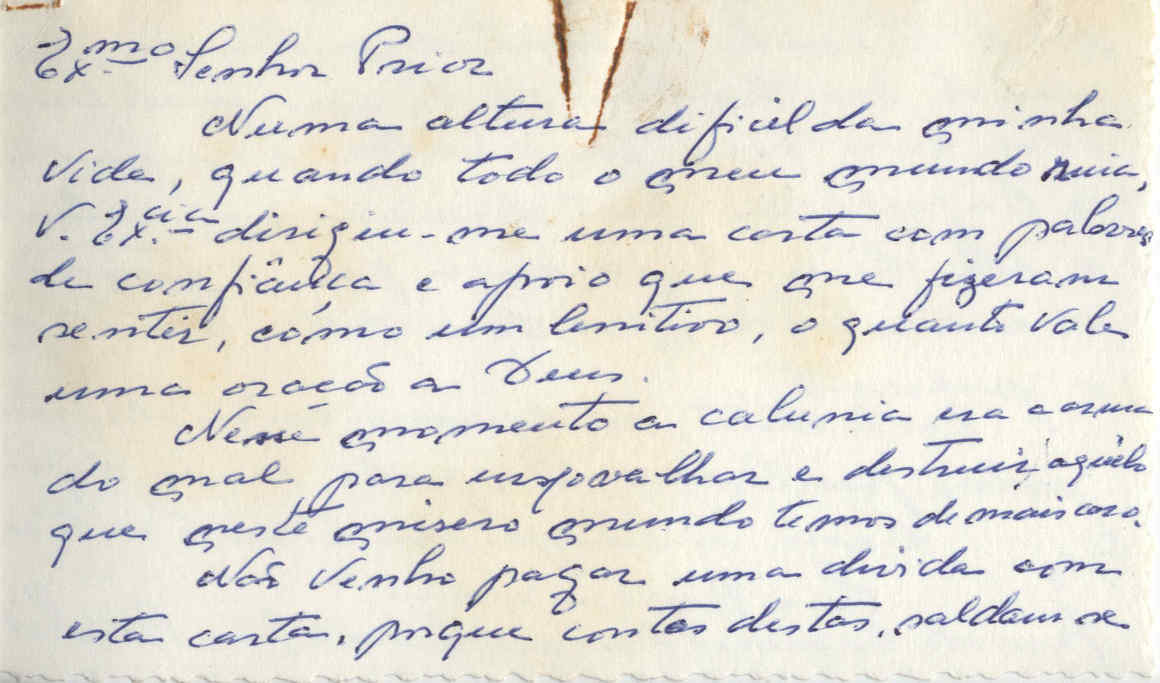 Ex.mo Senhor Prior
Numa altura dificil da minha
vida, quando todo o meu mundo ruia,
V. Ex.cia dirigiu-me uma carta com palavras
de confiânça e apoio que me fizeram
sentir, cómo um lenitivo, o quanto vale
uma oração a Deus.
Nesse momento a calunia era a arma
do mal, para enxovalhar e destruir aquêlo
que neste misero mundo temos de mais caro.
Não venho pagar uma divida com
esta carta, porque contas destas, saldam se